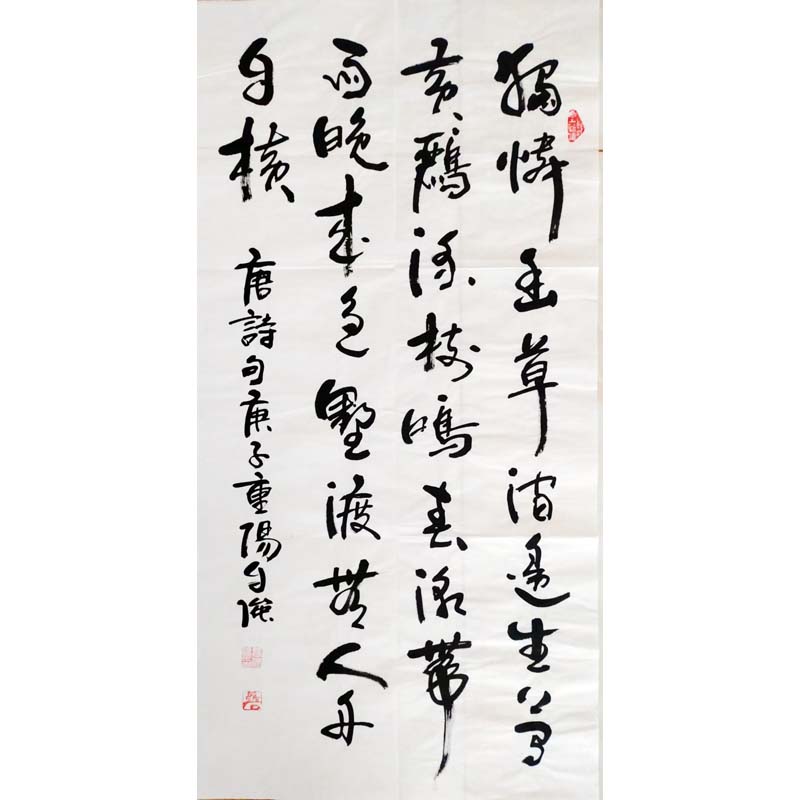 獨憐幽草澗邊生上有
黃鸝深樹鳴春潮帶
雨晚來急野渡無人舟
自橫
唐詩句庚子重陽自